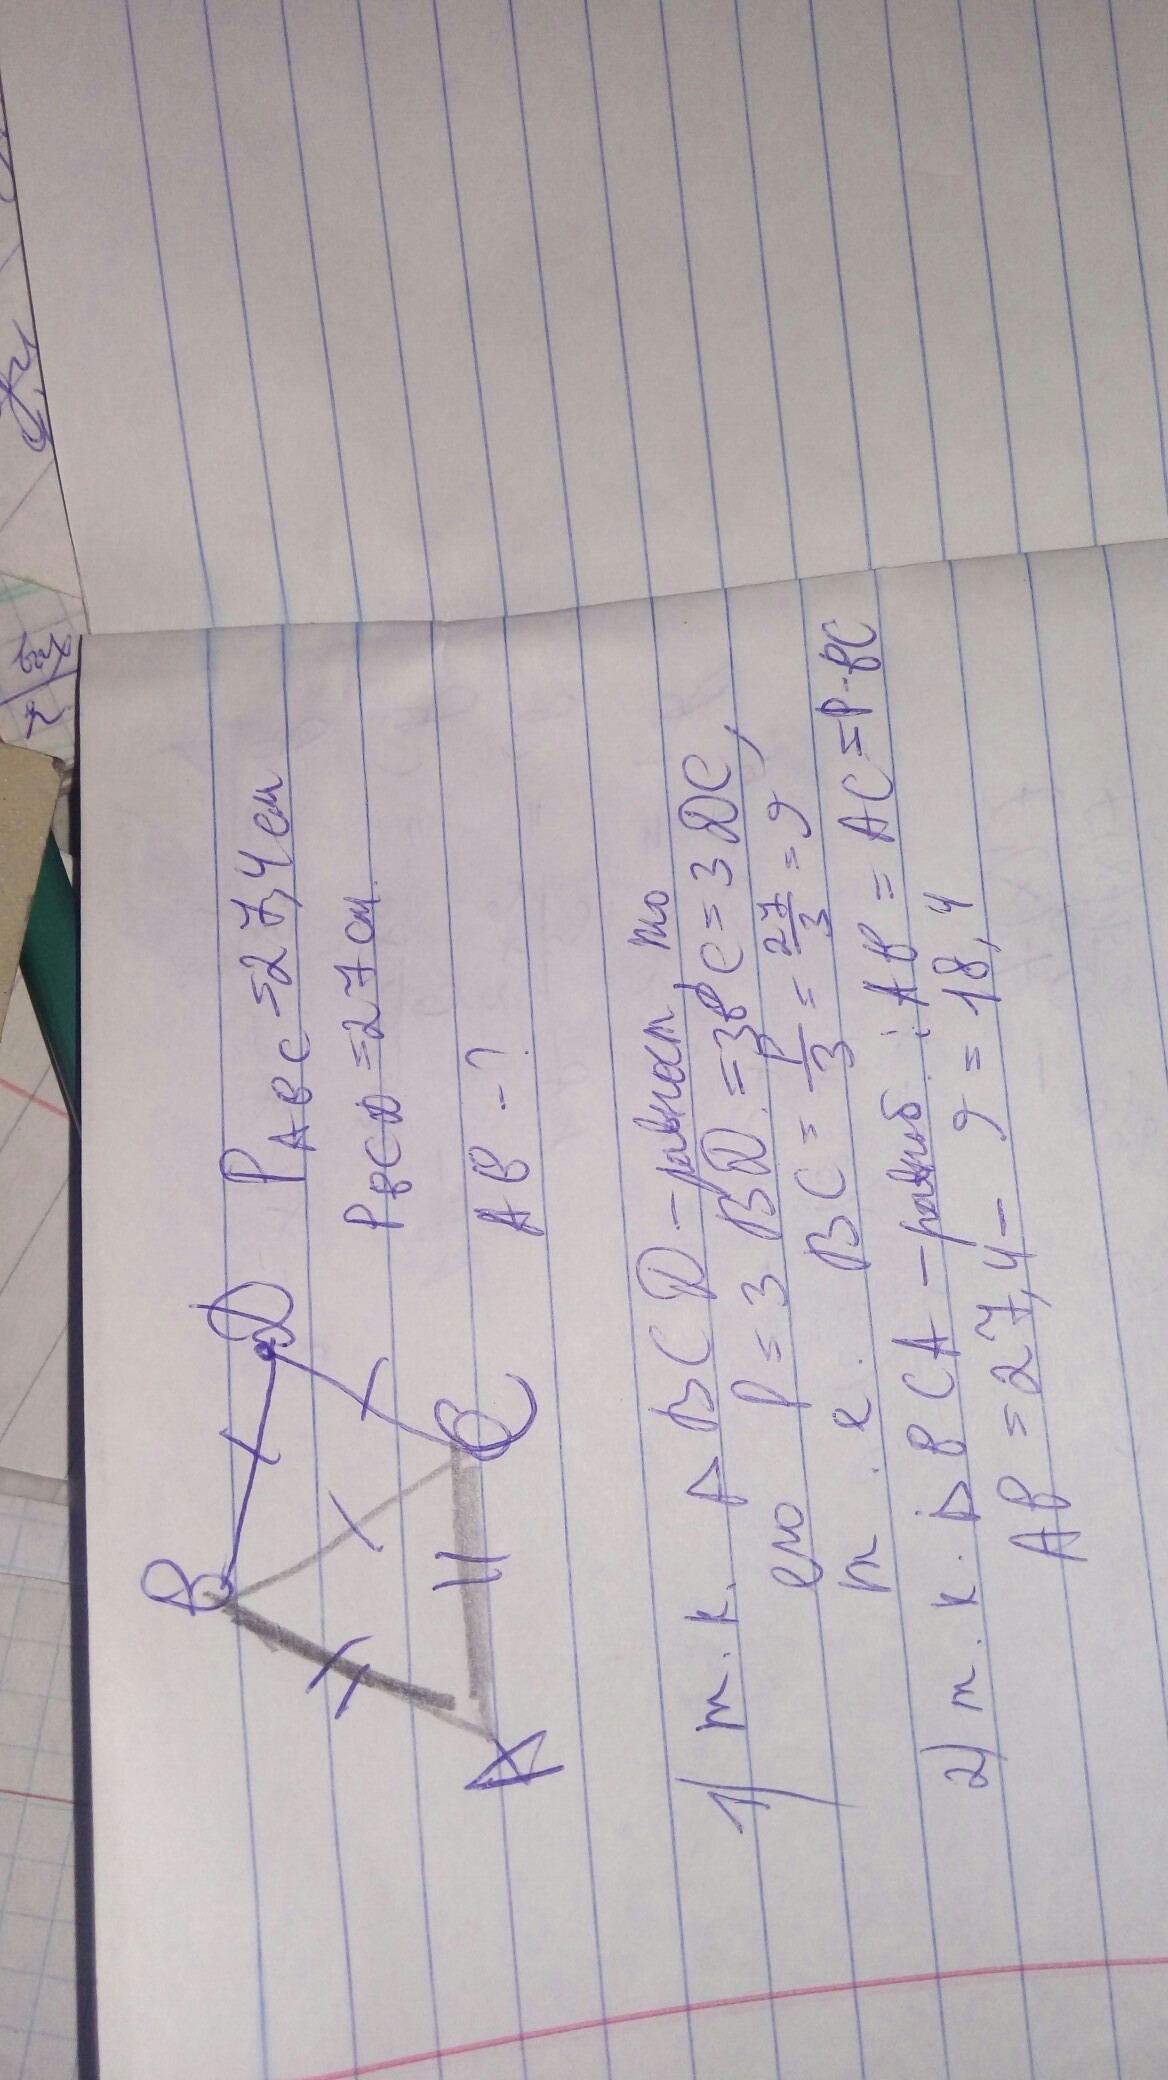 B
D
A
C
P ABC = 27,4 см
P BCD = 27 см.
AB - ?
1) т.к. Δ BCD - равност то
P = 3 BD = 3BC = 3DC,
т.е. BC = P/3 = 27/3 = 9
2) т.к. Δ BCA - равноб : AB = AC = P-BC
AB = 27,4 - 9 = 18,4